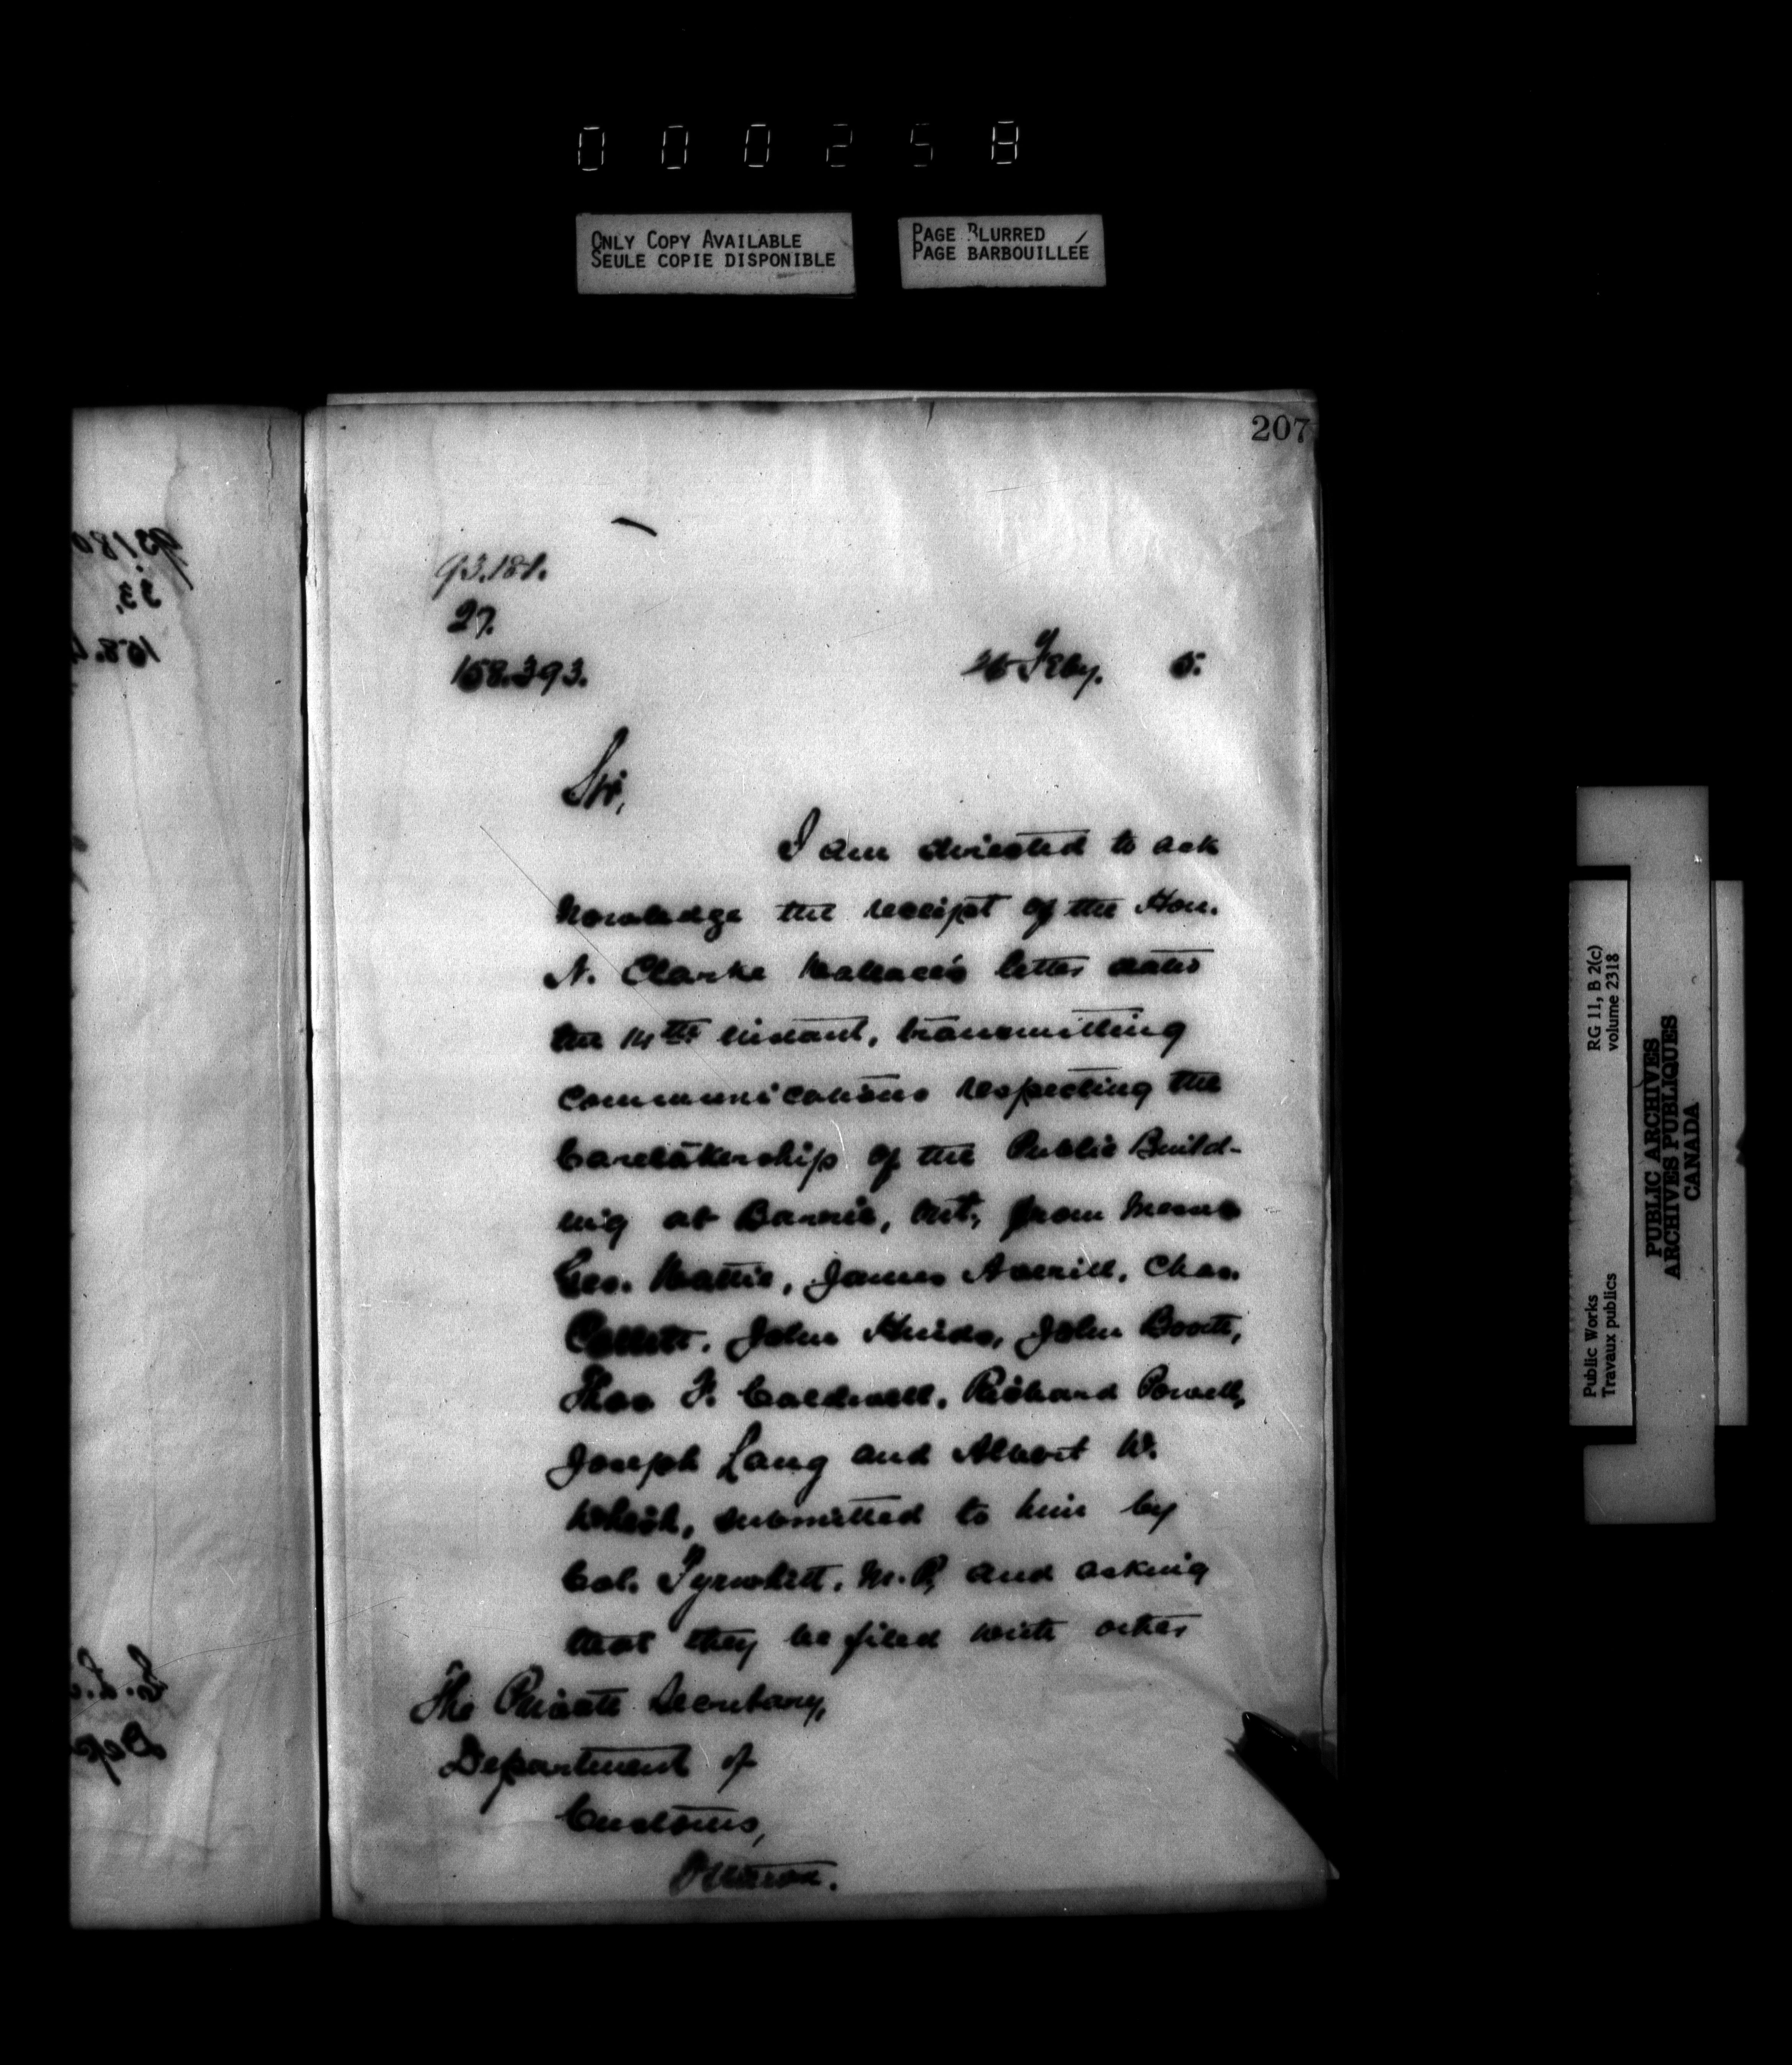 000258
ONLY COPY AVAILABLE
SEULE COPIE DISPONIBLE
PAGE BLURRED
PAGE BARBOUILLÉE
207
93.181.
27.
158.393.
Feby. 5.
Sir,
I am directed to ack
nowledge the receipt of the Hon.
N. Clarke Wallace's letter dated
the 14th instant, transmitting
communications respecting the
Caretakership of the Public Build-
ing at Barrie, Ont, from Messrs
Geo. James Averill, Chas.
John John
Thos F. Caldwell, Richard Powell,
Joseph Lang and Albert W.
submitted to him by
Col. Tyrwhitt, M.P, and asking
that they be filed with other
The Private Secretary,
Department of
Customs,
Ottawa.
Public Works
Travaux publics
RG 11, B 2(c)
volume 2318
PUBLIC ARCHIVES
ARCHIVES PUBLIQUES
CANADA